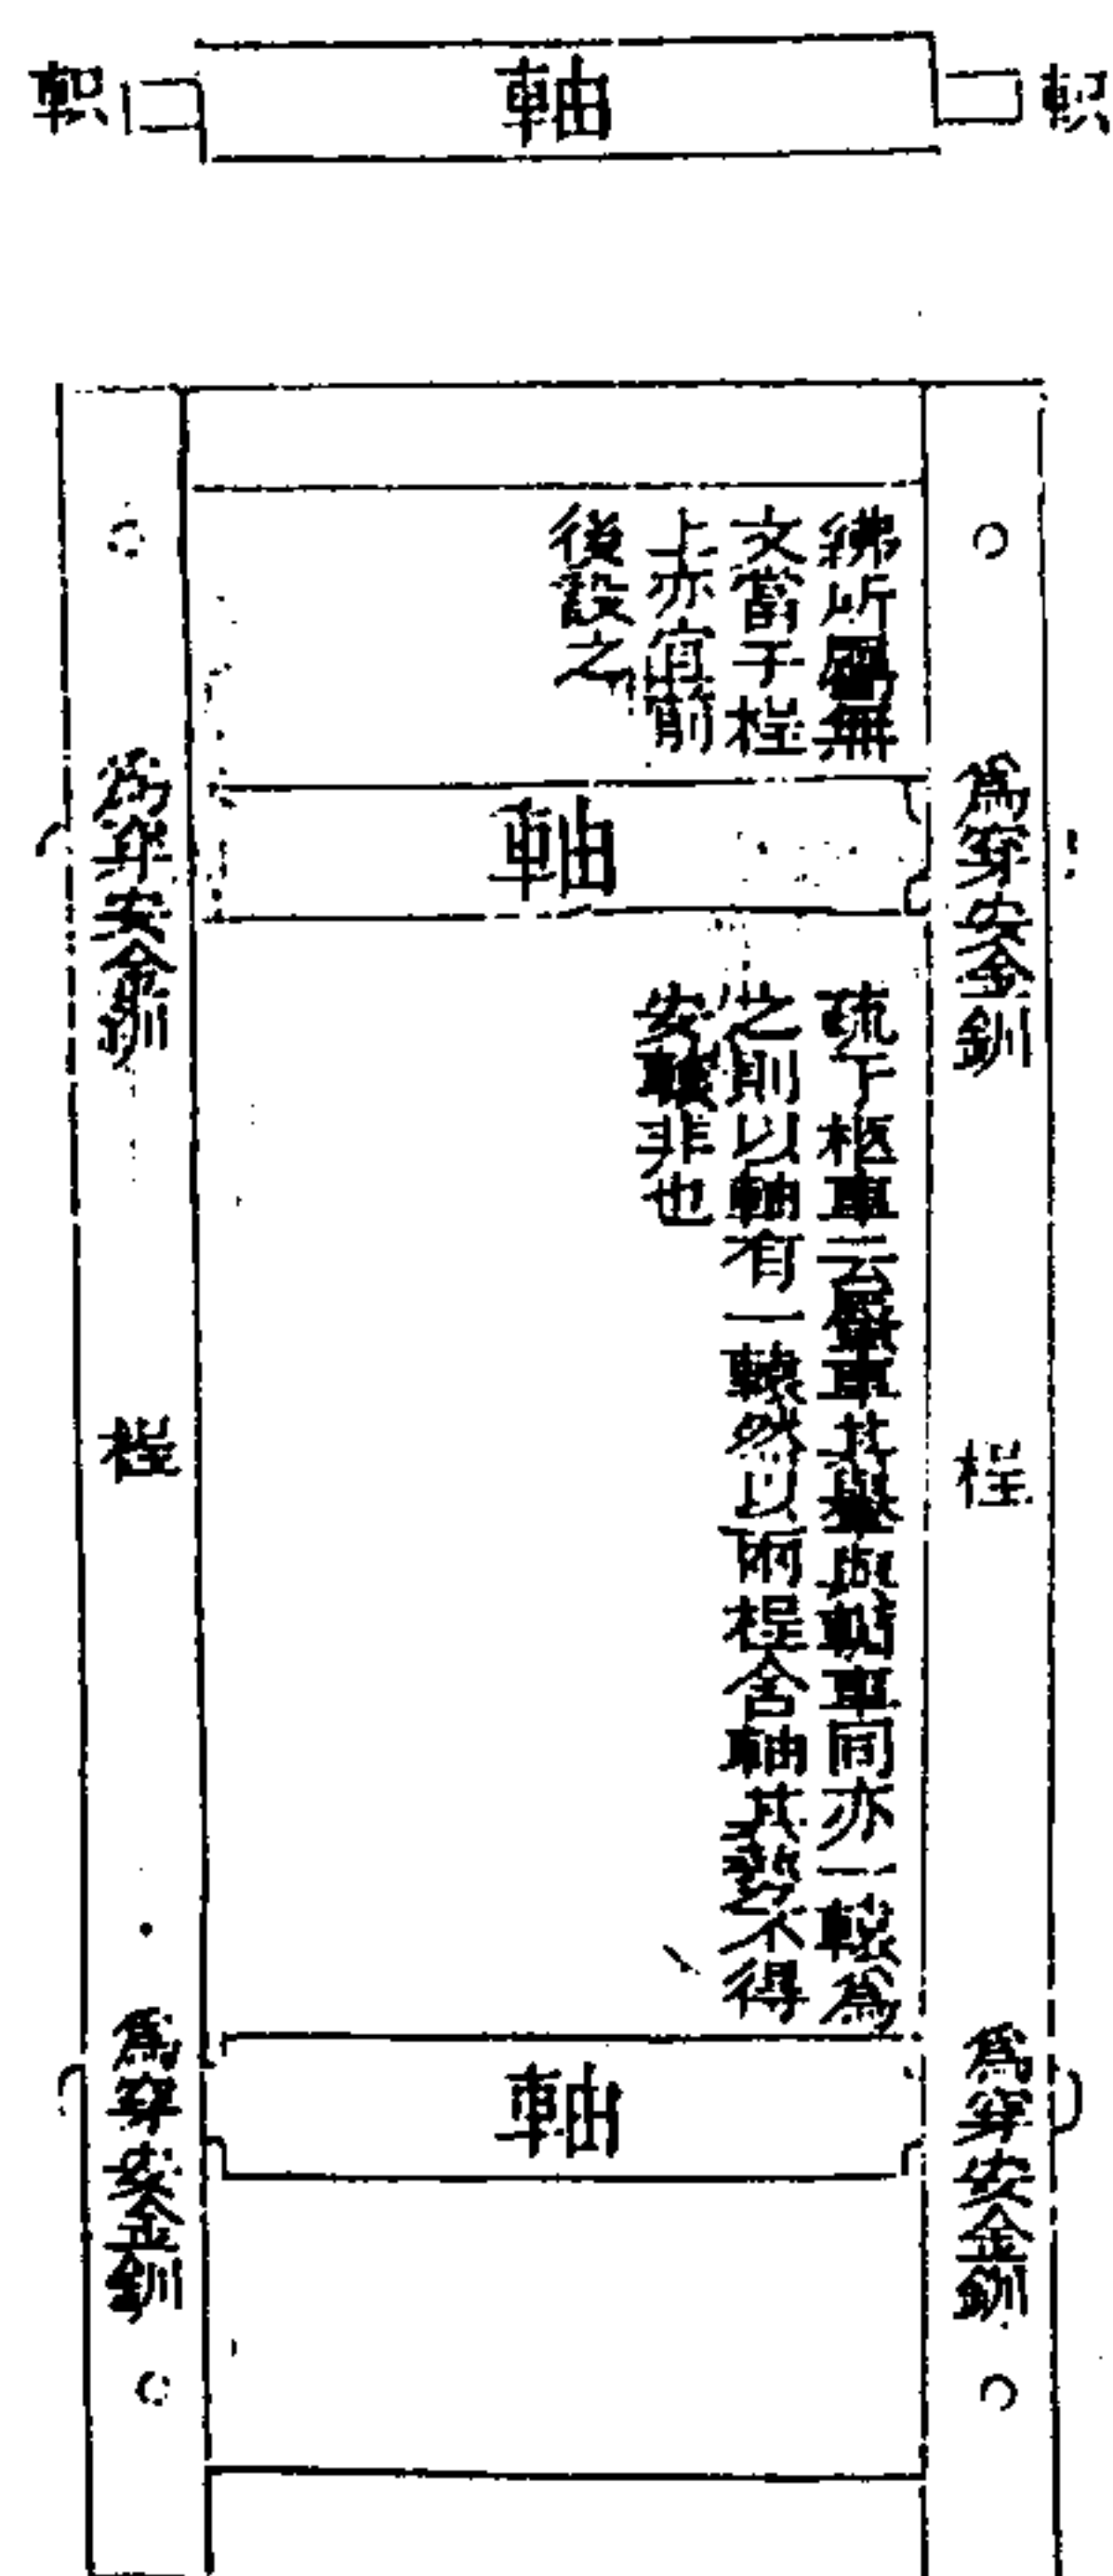 軹
軸
軹
為穿安金釧
桯
為穿安金釧
紼所屬無
文當于桯
上亦宜前
後設之
軸
疏于柩車云蜃車其轝與輴車同亦一轅為
之則以軸有一轅然以兩桯含軸其勢不得
安轅非也
軸
為穿安金釧
桯
為穿安金釧